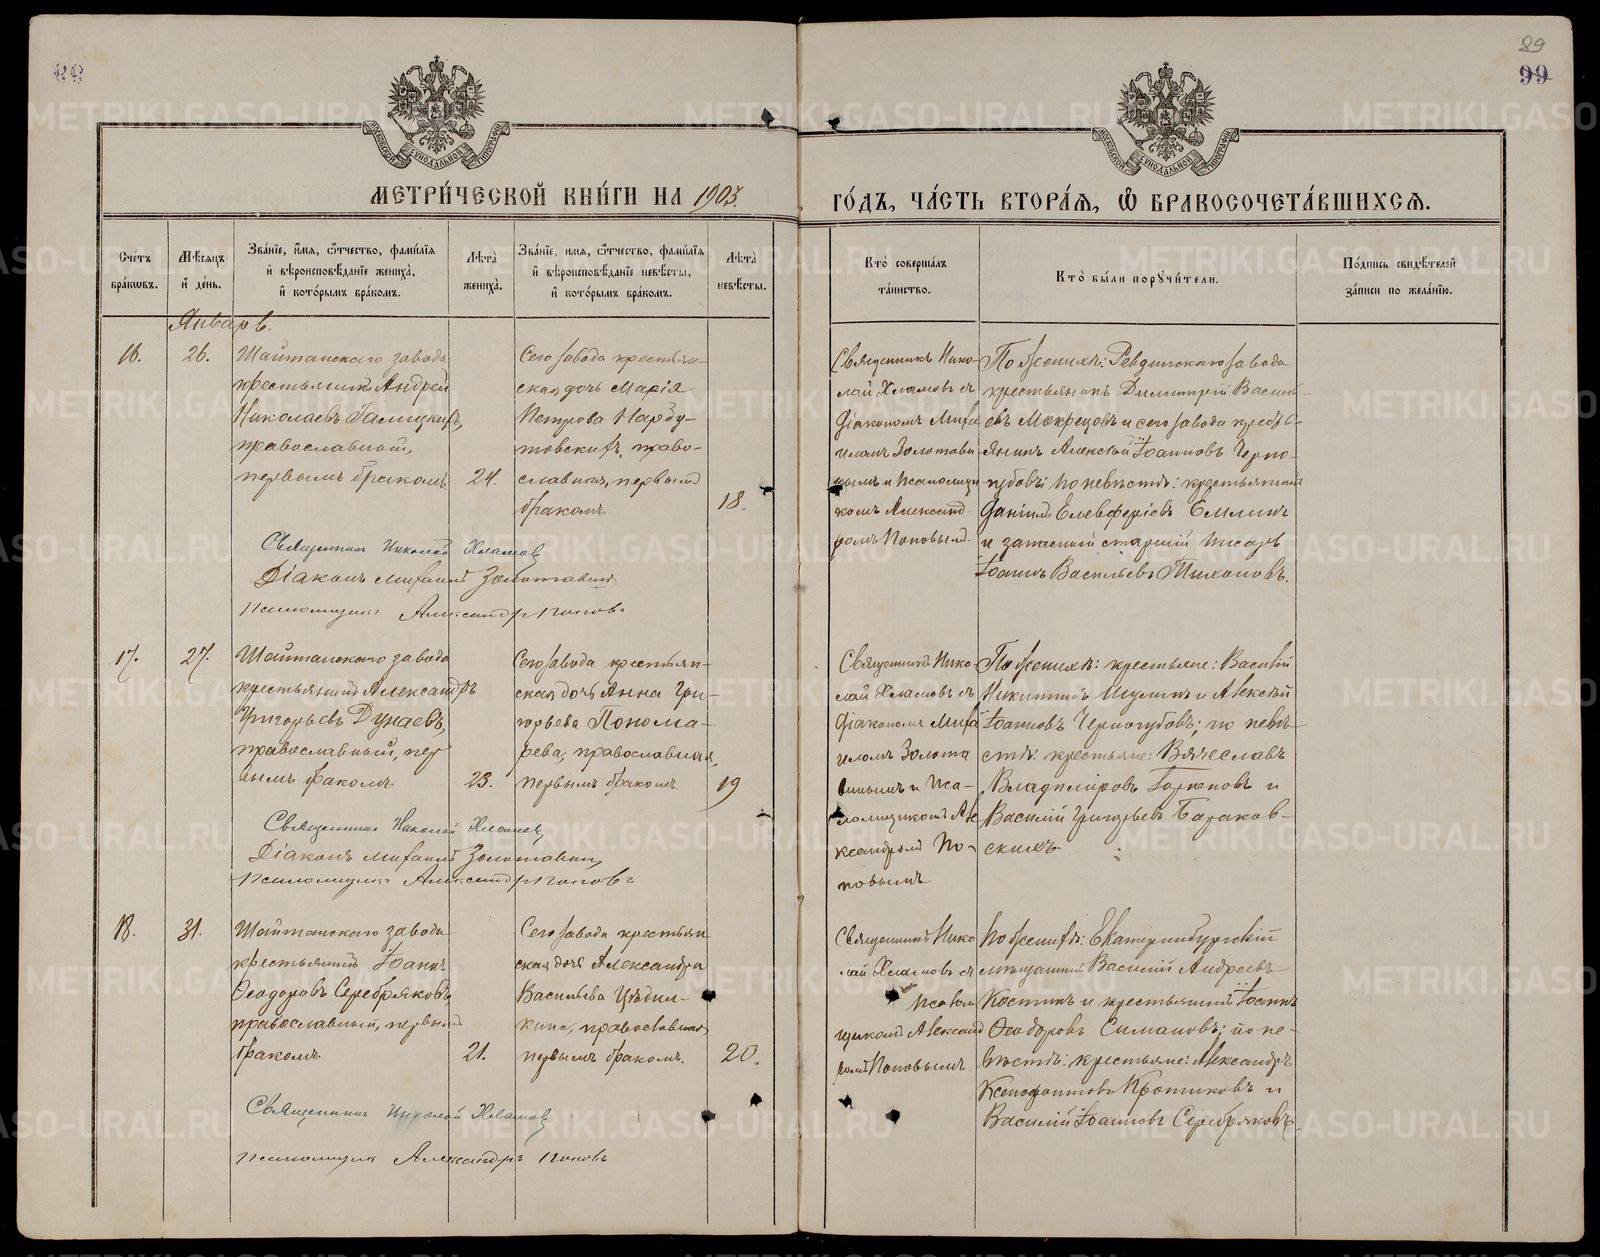 89
99
МЕТРИ́ЧЕСКОЙ КНИ́ГИ НА 1903.
ГО́ДЪ, ЧА́СТЬ ВТОРА́Я, Ѽ БРАКОСОЧЕТА́ВШИХСЯ.
МОСКОВСКОЙ СѴНОДАЛЬНОЙ ТИПОГРАФІИ
МОСКОВСКОЙ СѴНОДАЛЬНОЙ ТИПОГРАФІИ
Сче́тъ бра́кѡвъ.
Мѣ́сяцъ и҆ де́нь.
Зва́нїе, и҆́мя, ѻ҆́тчество, фами́лїя
и҆ вѣроисповѣ́данїе жениха̀,
и҆ кото́рымъ бра́комъ.
Лѣ́та жениха̀.
Зва́нїе, и҆́мя, ѻ҆́тчество, фами́лїя
и҆ вѣроисповѣ́данїе невѣ́сты,
и҆ кото́рымъ бра́комъ.
Лѣ́та невѣ́сты.
Кто̀ соверша́лъ
та́инство.
Кто̀ бы́ли порꙋчи́тели.
По́дпись свидѣ́телей
за́писи по жела́нїю.
Январь.
16.
26.
Шайтанскаго завода
крестьянинъ Андрей
Николаевъ Галицкихъ,
православный,
первымъ бракомъ.
24.
Сего завода крестьян-
ская дочь Марія
Петрова Нарбу-
товскихъ, право-
славная, первымъ
бракомъ
18.
Священникъ Нико-
лай Хламовъ съ
діакономъ Миха
иломъ Золотави-
нымъ и псаломщи-
комъ Александ-
ромъ Поповымъ.
По женихѣ: Ревдинскаго завода
крестьянинъ Димитрій Василь-
евъ Мокрецовъ и сего завода кресть-
янинъ Алексѣй Іоанновъ Черно-
губовъ; по невѣстѣ: крестьянинъ
Даніилъ Елевферіевъ Емлинъ
и запасный старшій писарь
Іоаннъ Васильевъ Тихоновъ.
Священникъ Николай Хламовъ
Діаконъ Михаилъ Золотавинъ
Псаломщикъ Александръ Поповъ
17.
27.
Шайтанскаго завода
крестьянинъ Александръ
Григорьевъ Дунаевъ,
православный, пер
вымъ бракомъ
23.
Сего завода крестьян-
ская дочь Анна Гри-
горьева Понома-
рева, православная,
первымъ бракомъ.
19
Священникъ Нико-
лай Хламовъ съ
діакономъ Миха
иломъ Золота
винымъ и пса-
ломщикомъ Але
ксандромъ По-
повымъ
По женихѣ: крестьяне: Василій
Никитинъ Шулинъ и Алексѣй
Іоанновъ Черногубовъ; по невѣ-
стѣ: крестьяне: Вячеславъ
Владиміровъ Горюновъ и
Василій Григорьевъ Бараков-
скихъ
Священникъ Николай Хламовъ
Діаконъ Михаилъ Золотавинъ
Псаломщикъ Александръ Поповъ
18.
31.
Шайтанскаго завода
крестьянинъ Іоаннъ
Ѳеодоровъ Серебряковъ,
православный, первымъ
бракомъ
21.
Сего завода крестьян
ская дочь Александра
Васильева Цѣдил-
кина, православная
первымъ бракомъ.
20.
Священникъ Нико
лай Хламовъ съ
псалом
щикомъ Александ
ромъ Поповымъ
По женихѣ: Екатеринбургскій
мѣщанинъ Василій Андреевъ
Костинъ и крестьянинъ Іоаннъ
Ѳеодоровъ Симановъ; по не-
вѣстѣ: крестьяне: Александръ
Ксенофонтовъ Кротиковъ и
Василій Іоанновъ Серебряковъ.
Священникъ Николай Хламовъ
Псаломщикъ Александръ Поповъ
METRIKI.GASO-URAL.RU